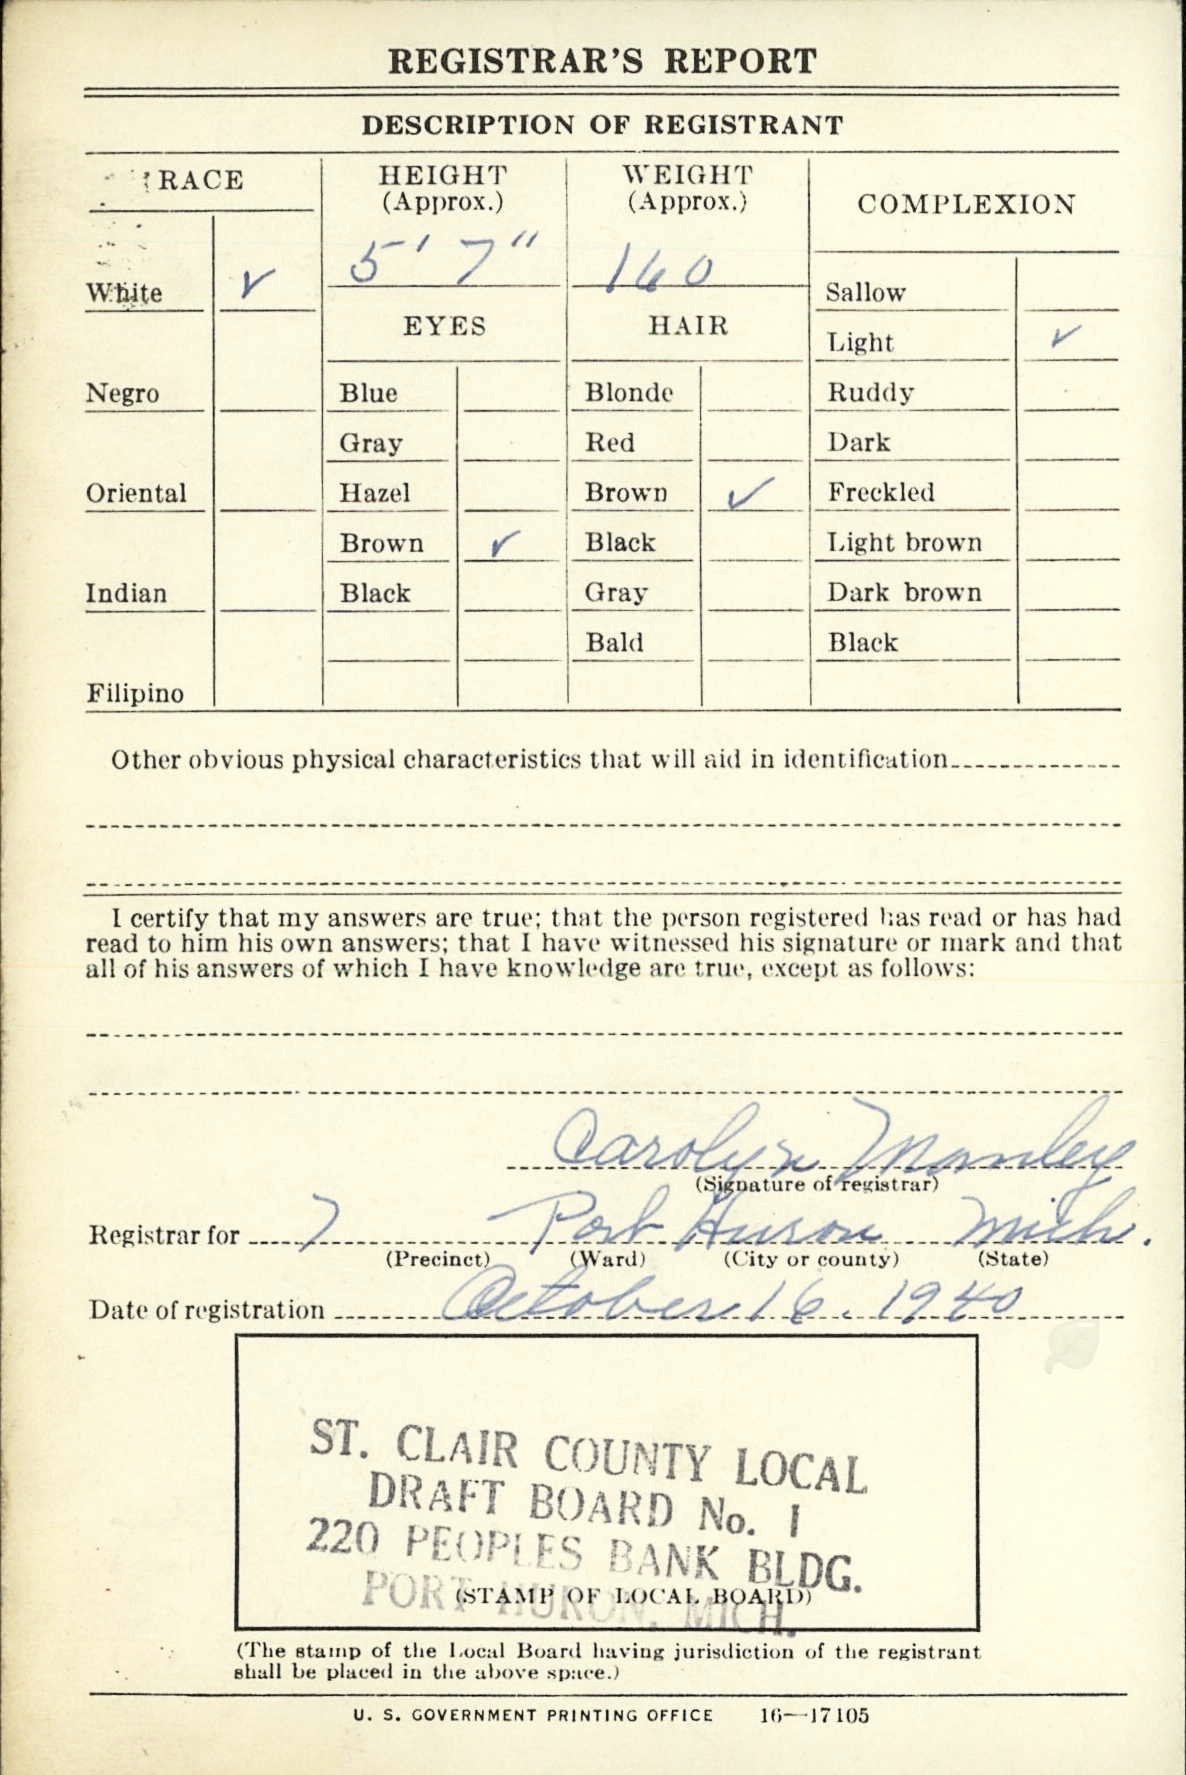 REGISTRAR'S REPORT
DESCRIPTION OF REGISTRANT
RACE
HEIGHT
(Approx.)
WEIGHT
(Approx.)
COMPLEXION
5' 7"
160
White ✓
Sallow
EYES
HAIR
Light ✓
Negro
Blue
Blonde
Ruddy
Gray
Red
Dark
Oriental
Hazel
Brown ✓
Freckled
Brown ✓
Black
Light brown
Indian
Black
Gray
Dark brown
Bald
Black
Filipino
Other obvious physical characteristics that will aid in identification
I certify that my answers are true; that the person registered has read or has had
read to him his own answers; that I have witnessed his signature or mark and that
all of his answers of which I have knowledge are true, except as follows:
Carolyn Manley
(Signature of registrar)
Registrar for 7 Port Huron Mich.
(Precinct) (Ward) (City or county) (State)
Date of registration October 16, 1940
ST. CLAIR COUNTY LOCAL
DRAFT BOARD No. 1
220 PEOPLES BANK BLDG.
PORT HURON, MICH.
(STAMP OF LOCAL BOARD)
(The stamp of the Local Board having jurisdiction of the registrant
shall be placed in the above space.)
U. S. GOVERNMENT PRINTING OFFICE 16—17105